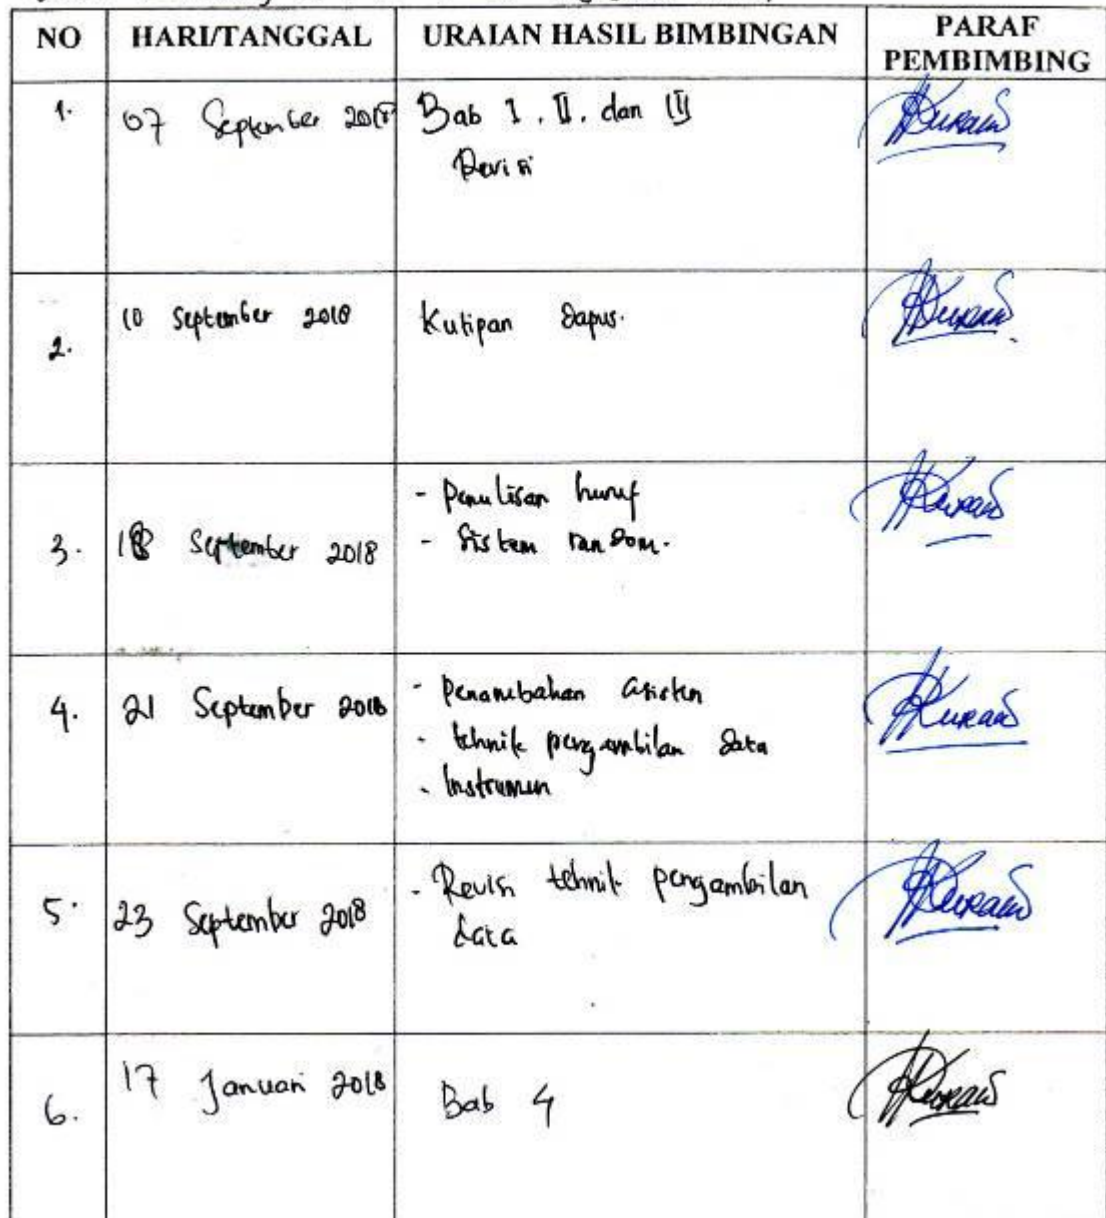 NO HARI/TANGGAL URAIAN HASIL BIMBINGAN PARAF PEMBIMBING
1. 07 September 2018 Bab I. II. dan III
Revisi
2. 10 September 2018 Kutipan Dapus.
3. 18 September 2018 - Penulisan huruf
- Sistem random.
4. 21 September 2018 - Penambahan asisten
- tehnik pengambilan data
- Instrumen
5. 23 September 2018 - Revisi tehnik pengambilan
data
6. 17 Januari 2018 Bab 4